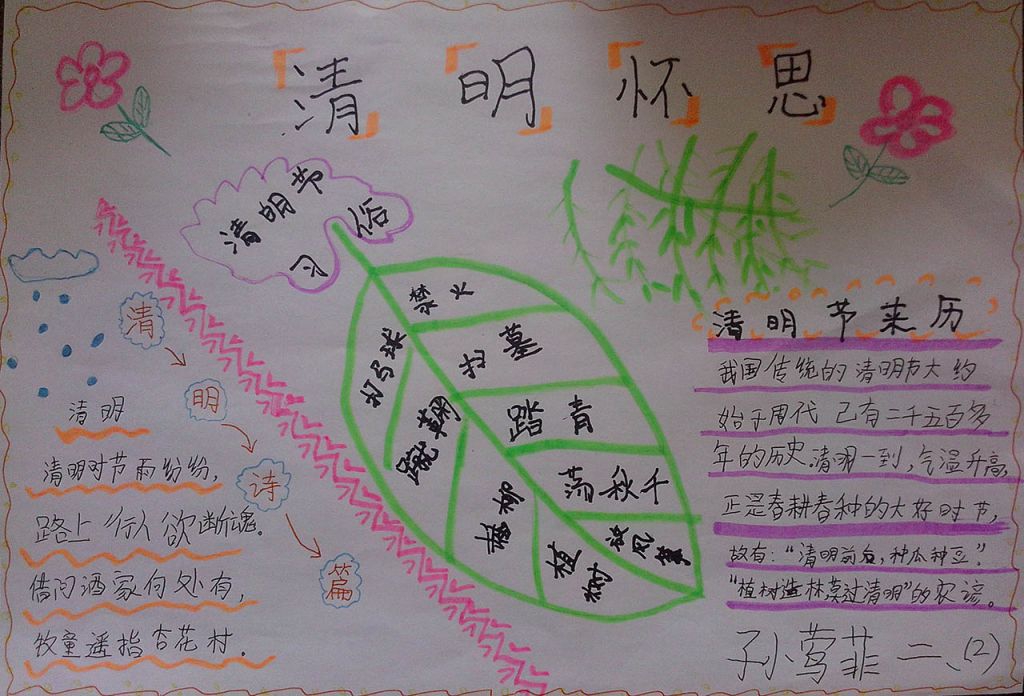 清明怀思
清明节
习俗
禁火
扫墓
踏青
荡秋千
放风筝
打马球
蹴鞠
插柳
植树
清明诗篇
清明
清明时节雨纷纷，
路上行人欲断魂。
借问酒家何处有，
牧童遥指杏花村．
清明节来历
我国传统的清明节大约
始于周代 已有二千五百多
年的历史．清明一到，气温升高，
正是春耕春种的大好时节，
故有：“清明前后，种瓜种豆．”
“植树造林莫过清明”的农谚。
孙莺菲 二、(2)